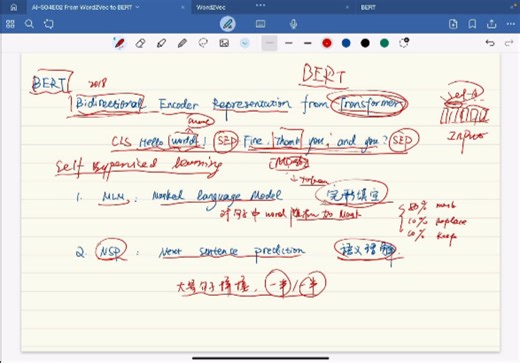 AI-S04E02 From Word2Vec to BERT
Word2Vec
BERT
BERT 2018 BERT
Bidirectional Encoder Representation from Transformer
self-A
CLS Hello world! SEP Fine. Thank you, and you? SEP
Inputs
Self Supervised learning
(Mask)
→ token
1. MLM: Masked Language Model 完形填空
对句子中 word 随机 to Mask
80% mask
10% replace
10% keep
2. NSP: Next sentence prediction 语义理解.
大量句子 一半/一半